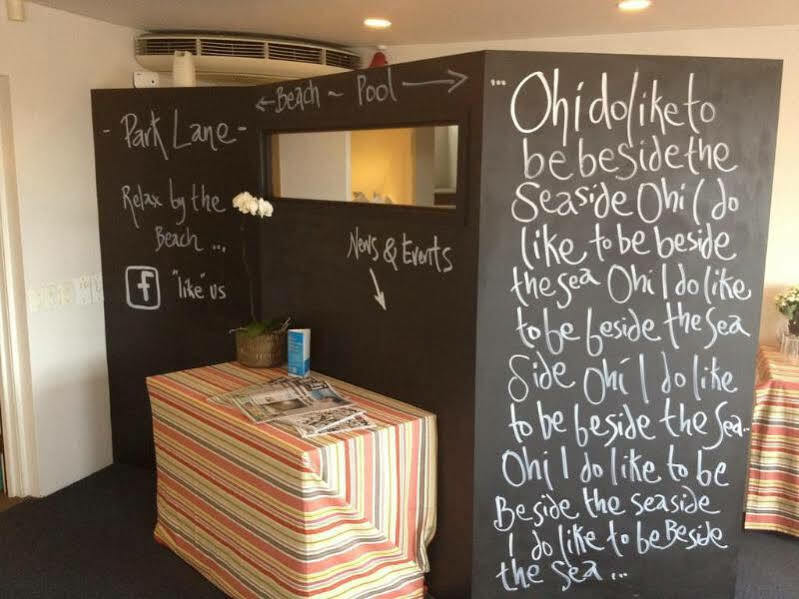 - Park Lane -
Relax by the
Beach ...
f "like" us
← Beach ~ Pool →
News & Events
... Oh i do like to
be beside the
Seaside Oh i I do
like to be beside
the sea Oh i I do like
to be beside the sea
Side Oh i I do like
to be beside the sea..
Oh i I do like to be
Beside the seaside
I do like to be Beside
the sea ...